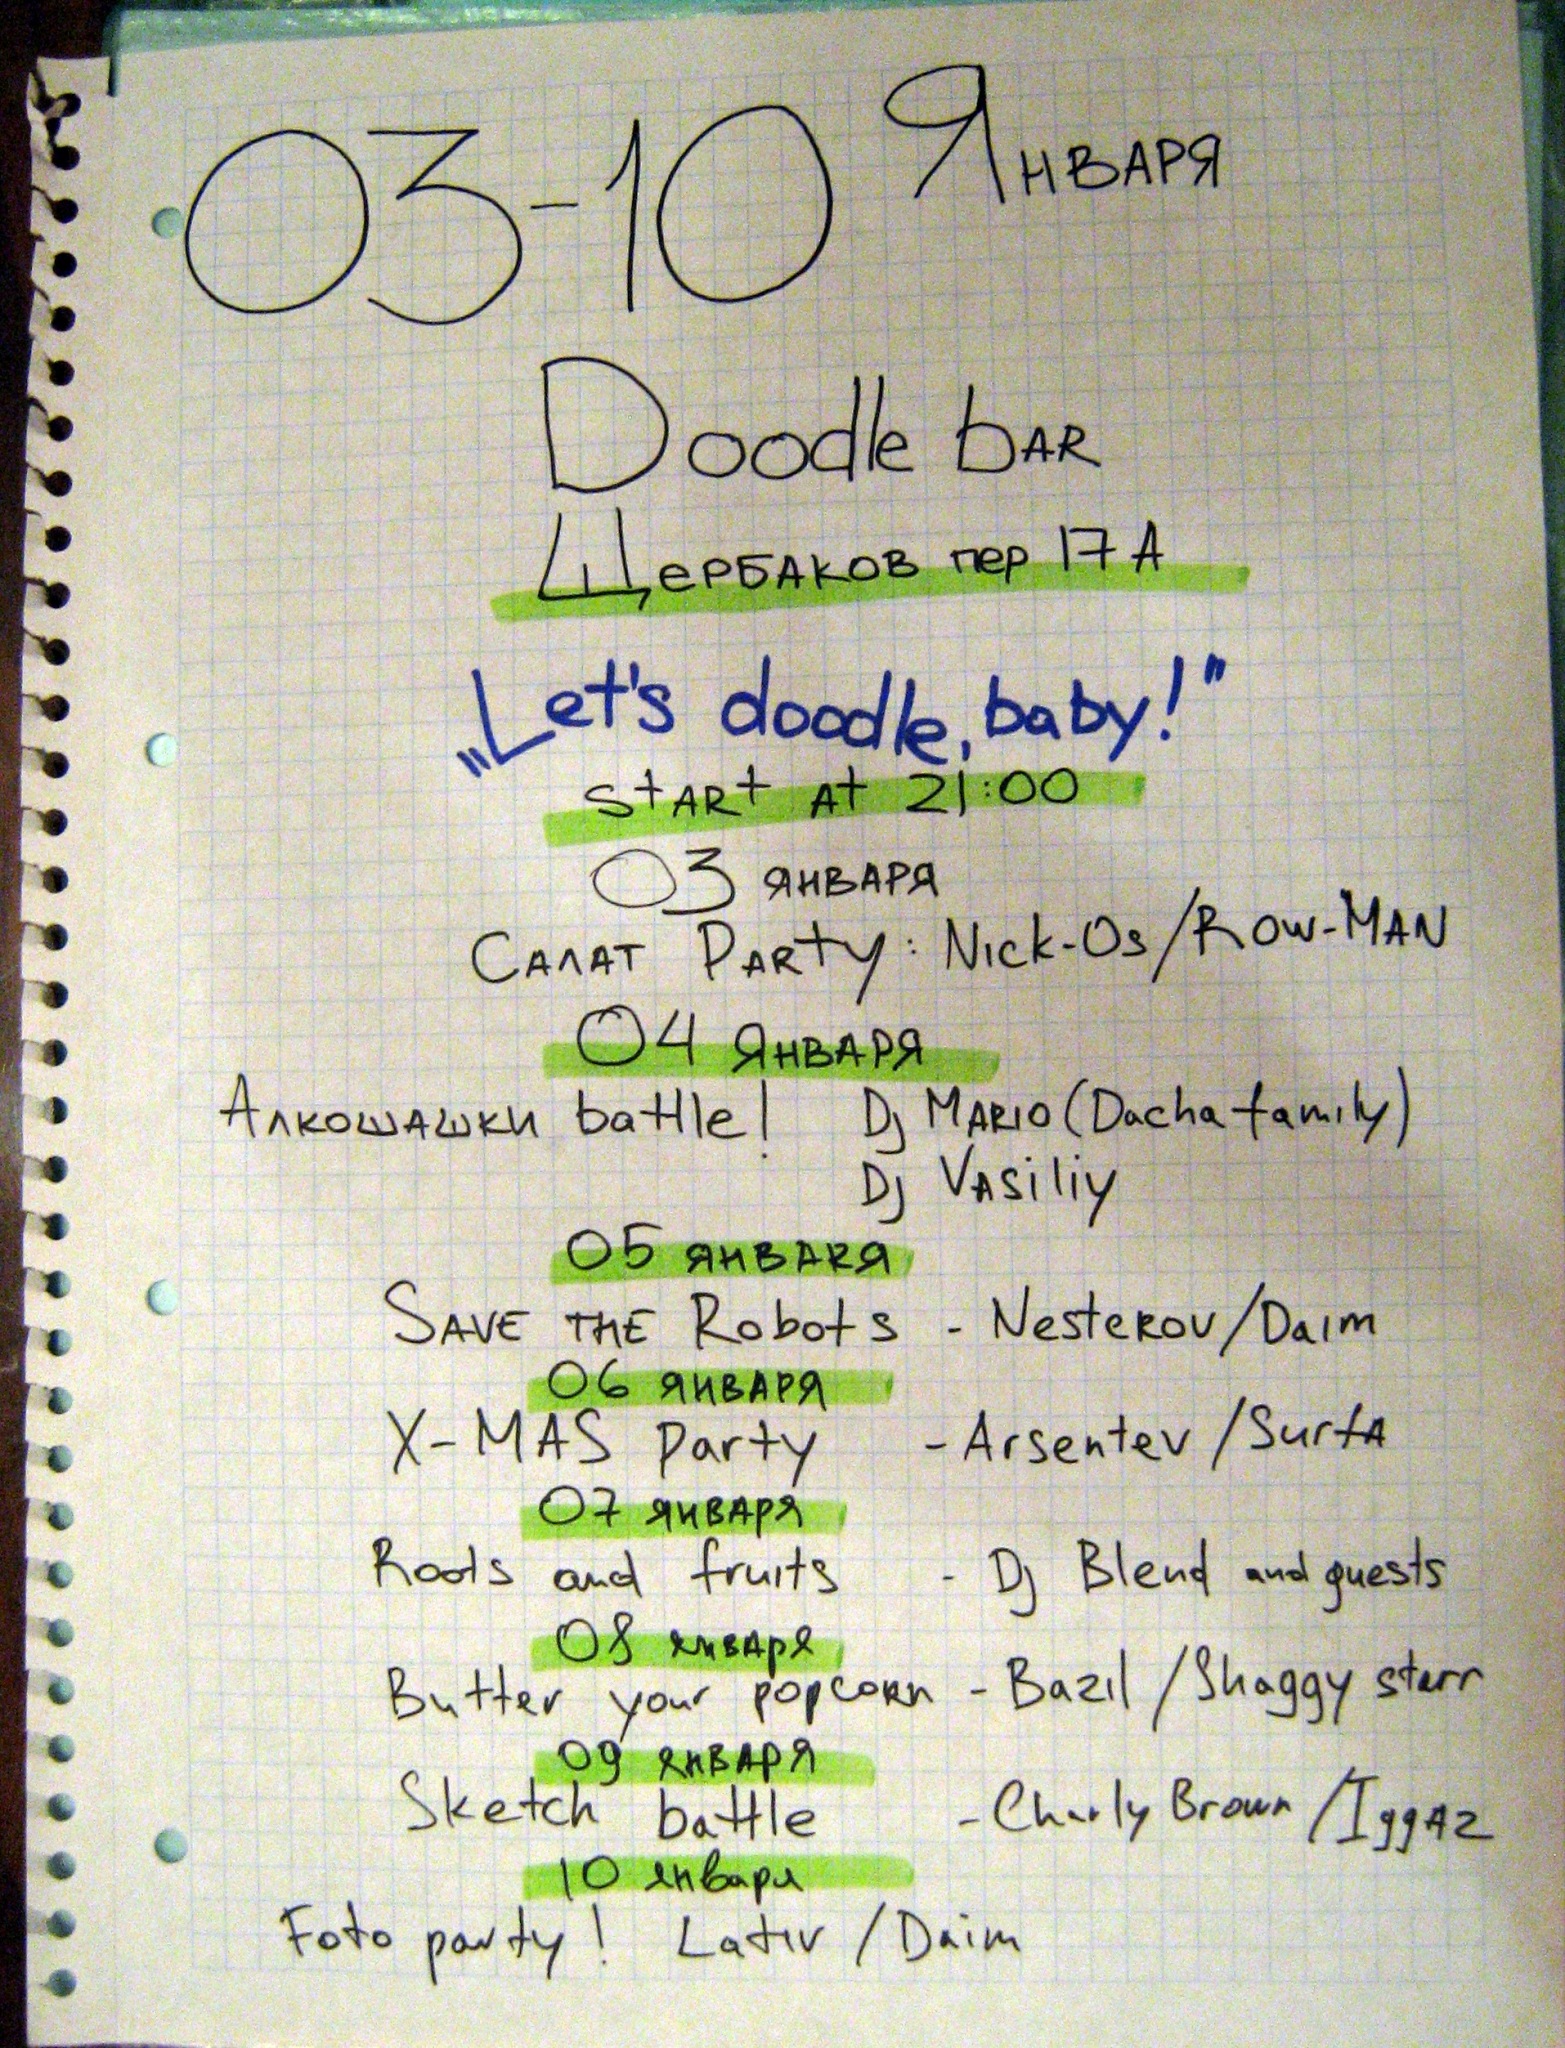 03-10 Января
Doodle bar
Щербаков пер 17 А
„Let's doodle, baby!"
start at 21:00
03 января
Салат Party: Nick-Os/Row-Man
04 Января
Алкошашки battle! Dj Mario (Dacha family)
Dj Vasiliy
05 января
Save the Robots - Nesterov/Daim
06 января
X-MAS party - Arsentev/Surfa
07 января
Roots and fruits - Dj Blend and guests
08 января
Butter your popcorn - Bazil/Shaggy starr
09 января
Sketch battle - Charly Brown/Iggaz
10 января
Foto party! Lativ/Daim